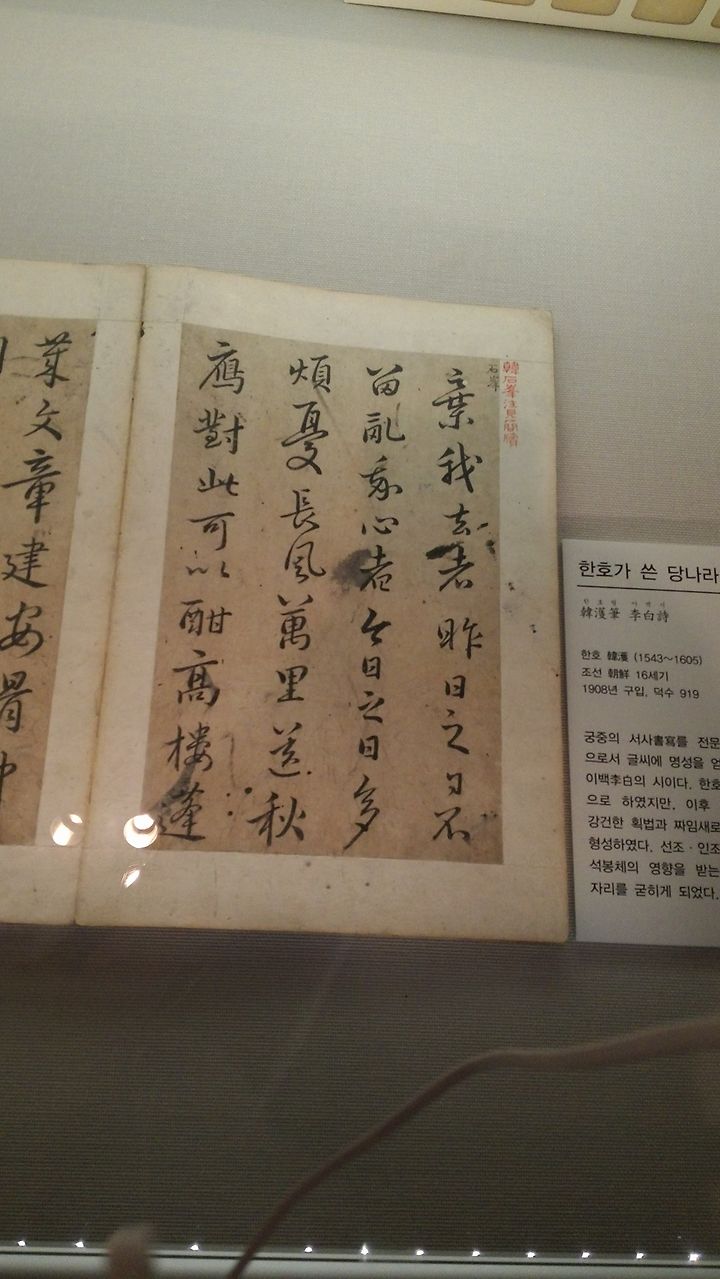 韓石峯注見簡牘
石峯
棄我去者昨日之日不
留亂我心者今日之日多
煩憂長風萬里送秋
鴈對此可以酣高樓蓬
萊文章建安骨中
한호가 쓴 당나라
한호필 이백시
韓濩筆 李白詩
한호 韓濩 (1543~1605)
조선 朝鮮 16세기
1908년 구입, 덕수 919
궁중의 서사書寫를 전문
으로서 글씨에 명성을 얻
이백李白의 시이다. 한호
으로 하였지만, 이후
강건한 획법과 짜임새로
형성하였다. 선조·인조
석봉체의 영향을 받는
자리를 굳히게 되었다.